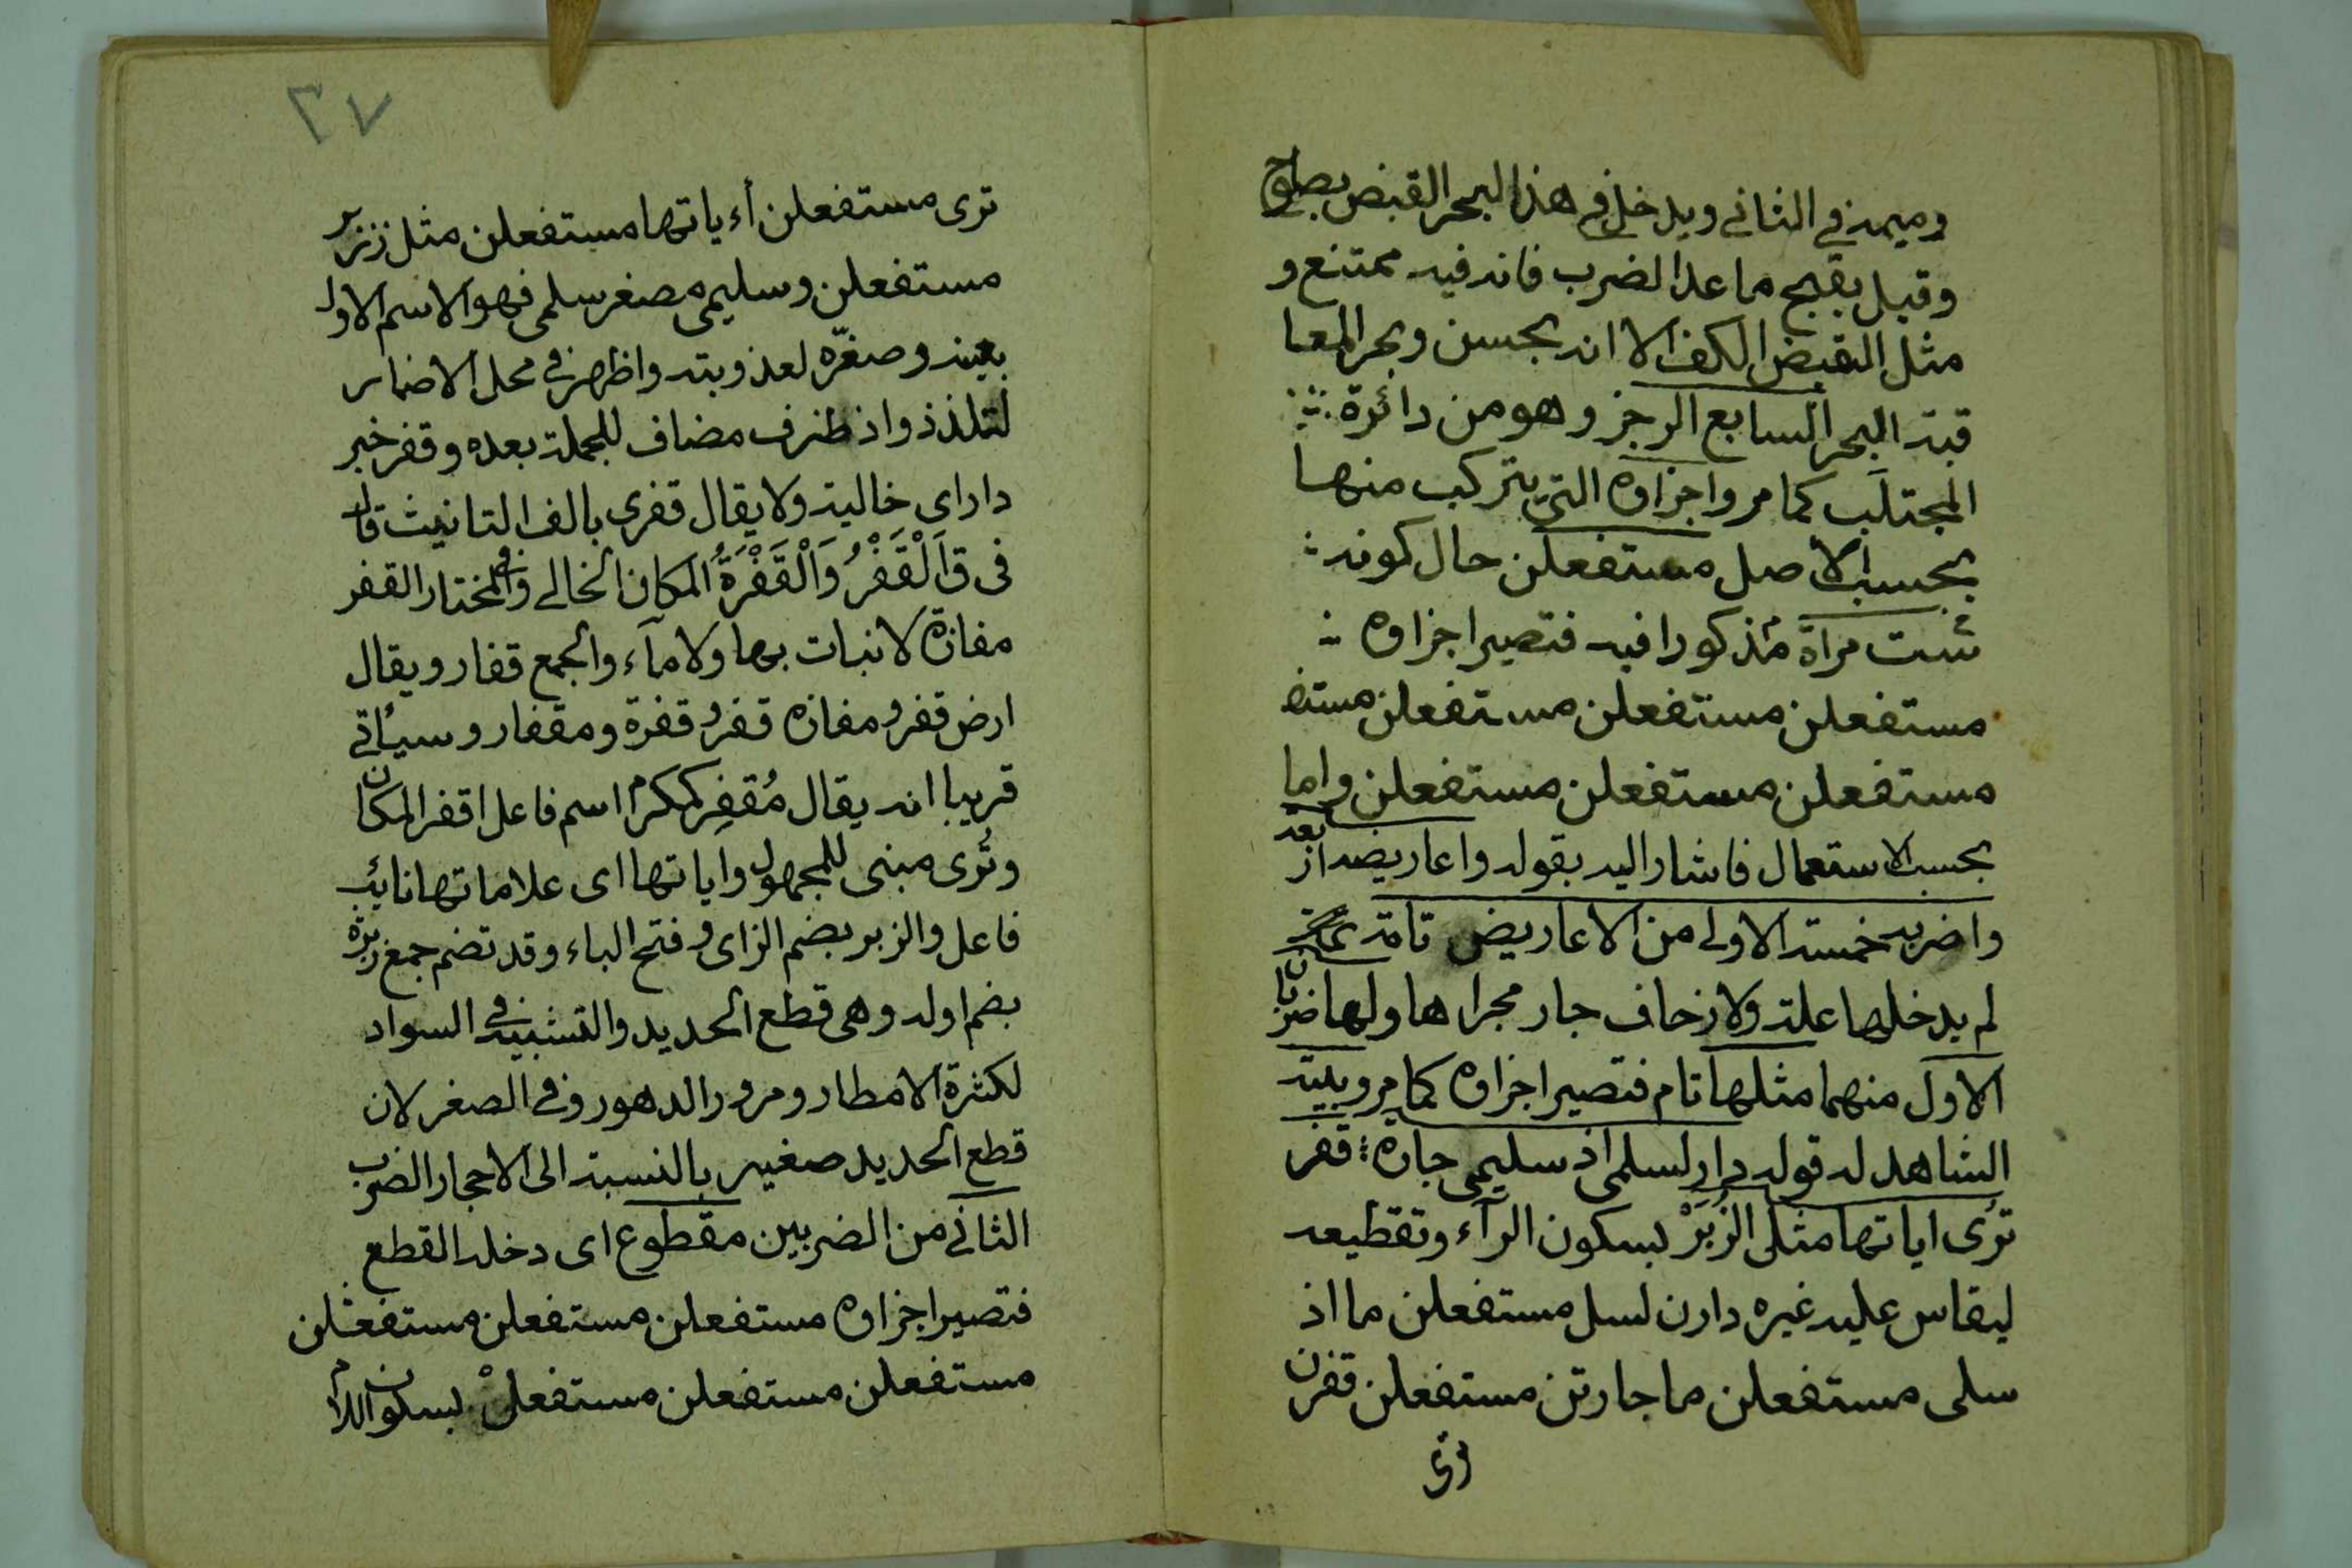 وميمه في الثاني ويدخل في هذا البحر القبض بصلوح
وقيل بقبح ما عدا الضرب فانه فيه ممتنع و
مثل القبض الكف الا انه بحسن وبحر المعا
قبة البحر السابع الرجز وهو من دائرة
المجتلَب كما مر واجزاوه التي يتركب منها
بحسب الاصل مستفعلن حال كونه
ست مراة مذكورا فيه فتصير اجزاوه
مستفعلن مستفعلن مستفعلن مستف
مستفعلن مستفعلن مستفعلن واما
بحسب الاستعمال فاشار اليه بقوله واعاريضه اربعة
واضربه خمسة الاولى من الاعاريض تامة
لم يدخلها علة ولا زحاف جار مجراها ولها ضربان
الاول منهما مثلها تام فتصير اجزاوه كما مر وبيته
الشاهد له قوله دار لسلمى اذ سليمى جاره قفر
ترى اياتها مثل الزُبَرْ بسكون الرآء وتقطيعه
ليقاس عليه غيره دارن لسل مستفعلن ما اذ
سلى مستفعلن ما جارتن مستفعلن قفرن
ترى
٣٧
ترى مستفعلن أءياتها مستفعلن مثل ززبر
مستفعلن وسليمى مصغر سلمى فهو الاسم الاول
بعينه وصغّره لعذوبته واظهره في محل الاضمار
لتلذذ واذ ظرف مضاف للجملة بعده وقفر خبر
دار اى خالية ولا يقال قفرى بالف التانيث قال
فى ق اَلْقَفْرُ وَالْقَفْرَةُ المكان الخالي وفي المختار القفر
مفازة لا نبات بها ولا مآء والجمع قفار ويقال
ارض قفر ومفازه قفر وقفرة ومقفار وسيأتي
قريبا انه يقال مُقفِر كمكرم اسم فاعل اقفر المكان
وتُرى مبنى للمجهول واياتها اى علاماتها نائب
فاعل والزبر بضم الزاى وفتح الباء وقد تضم جمع زبرة
بضم اوله وهى قطع الحديد والتشبيه في السواد
لكثرة الامطار ومرور الدهور وفي الصغر لان
قطع الحديد صغير بالنسبة الى الاحجار الضرب
الثاني من الضربين مقطوع اى دخله القطع
فتصير اجزاوه مستفعلن مستفعلن مستفعلن
مستفعلن مستفعلن مستفعلْ بسكون اللام